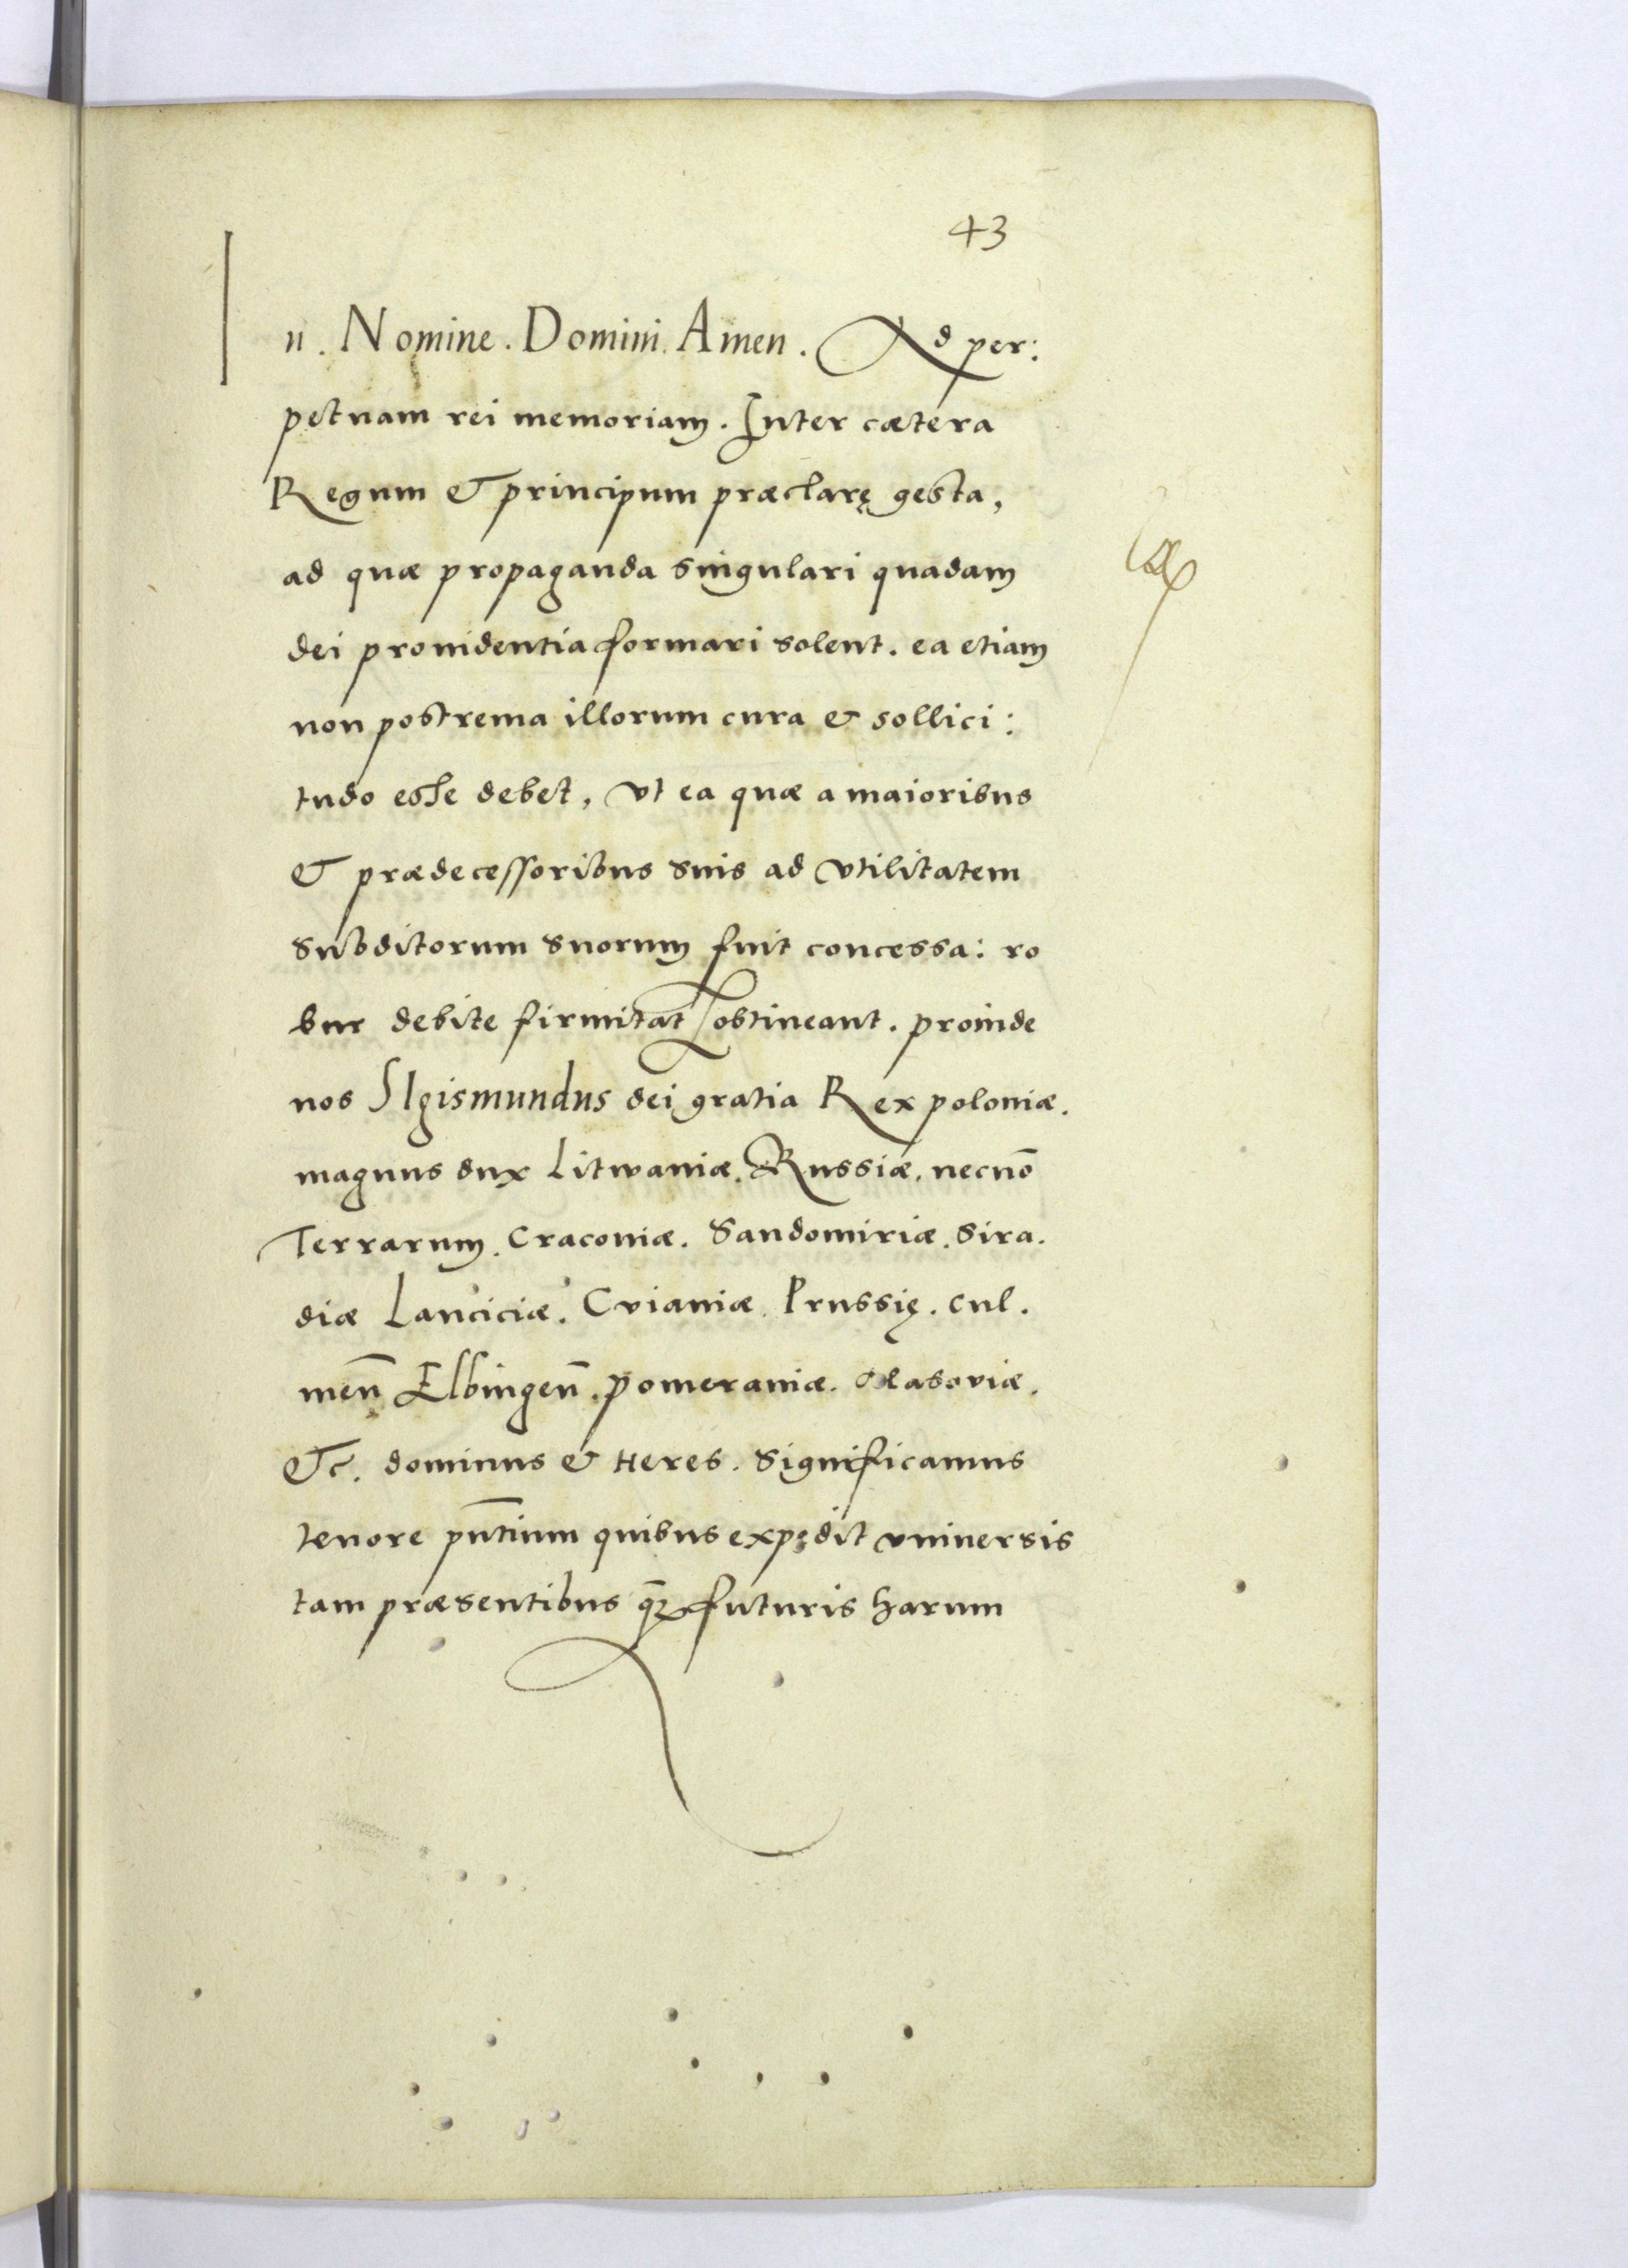 43
In. Nomine. Domini. Amen. Ad per:
petuam rei memoriam. Inter cætera
Regum & principum præclarę gesta,
ad quæ propaganda singulari quadam
dei prouidentia formari solent. ea etiam
non postrema illorum cura & sollici:
tudo esse debet, vt ea quæ a maioribus
& prædecessoribus suis ad vtilitatem
subditorum suorum fuit concessa: ro
bur debite firmitat obtineant. proinde
nos SIgismundus dei gratia Rex poloniæ.
magnus dux Litwaniæ. Russiæ. necnō
Terrarum. Cracouiæ. Sandomiriæ. Sira.
diæ Lanciciæ. Cviauiæ. Prussię. Cul.
meñ Elbingeñ. pomeraniæ. Masoviæ.
&c. dominus & Heres. Significamus
tenore pñtium quibus expędit vniuersis
tam præsentibus q̄ȝ futuris harum